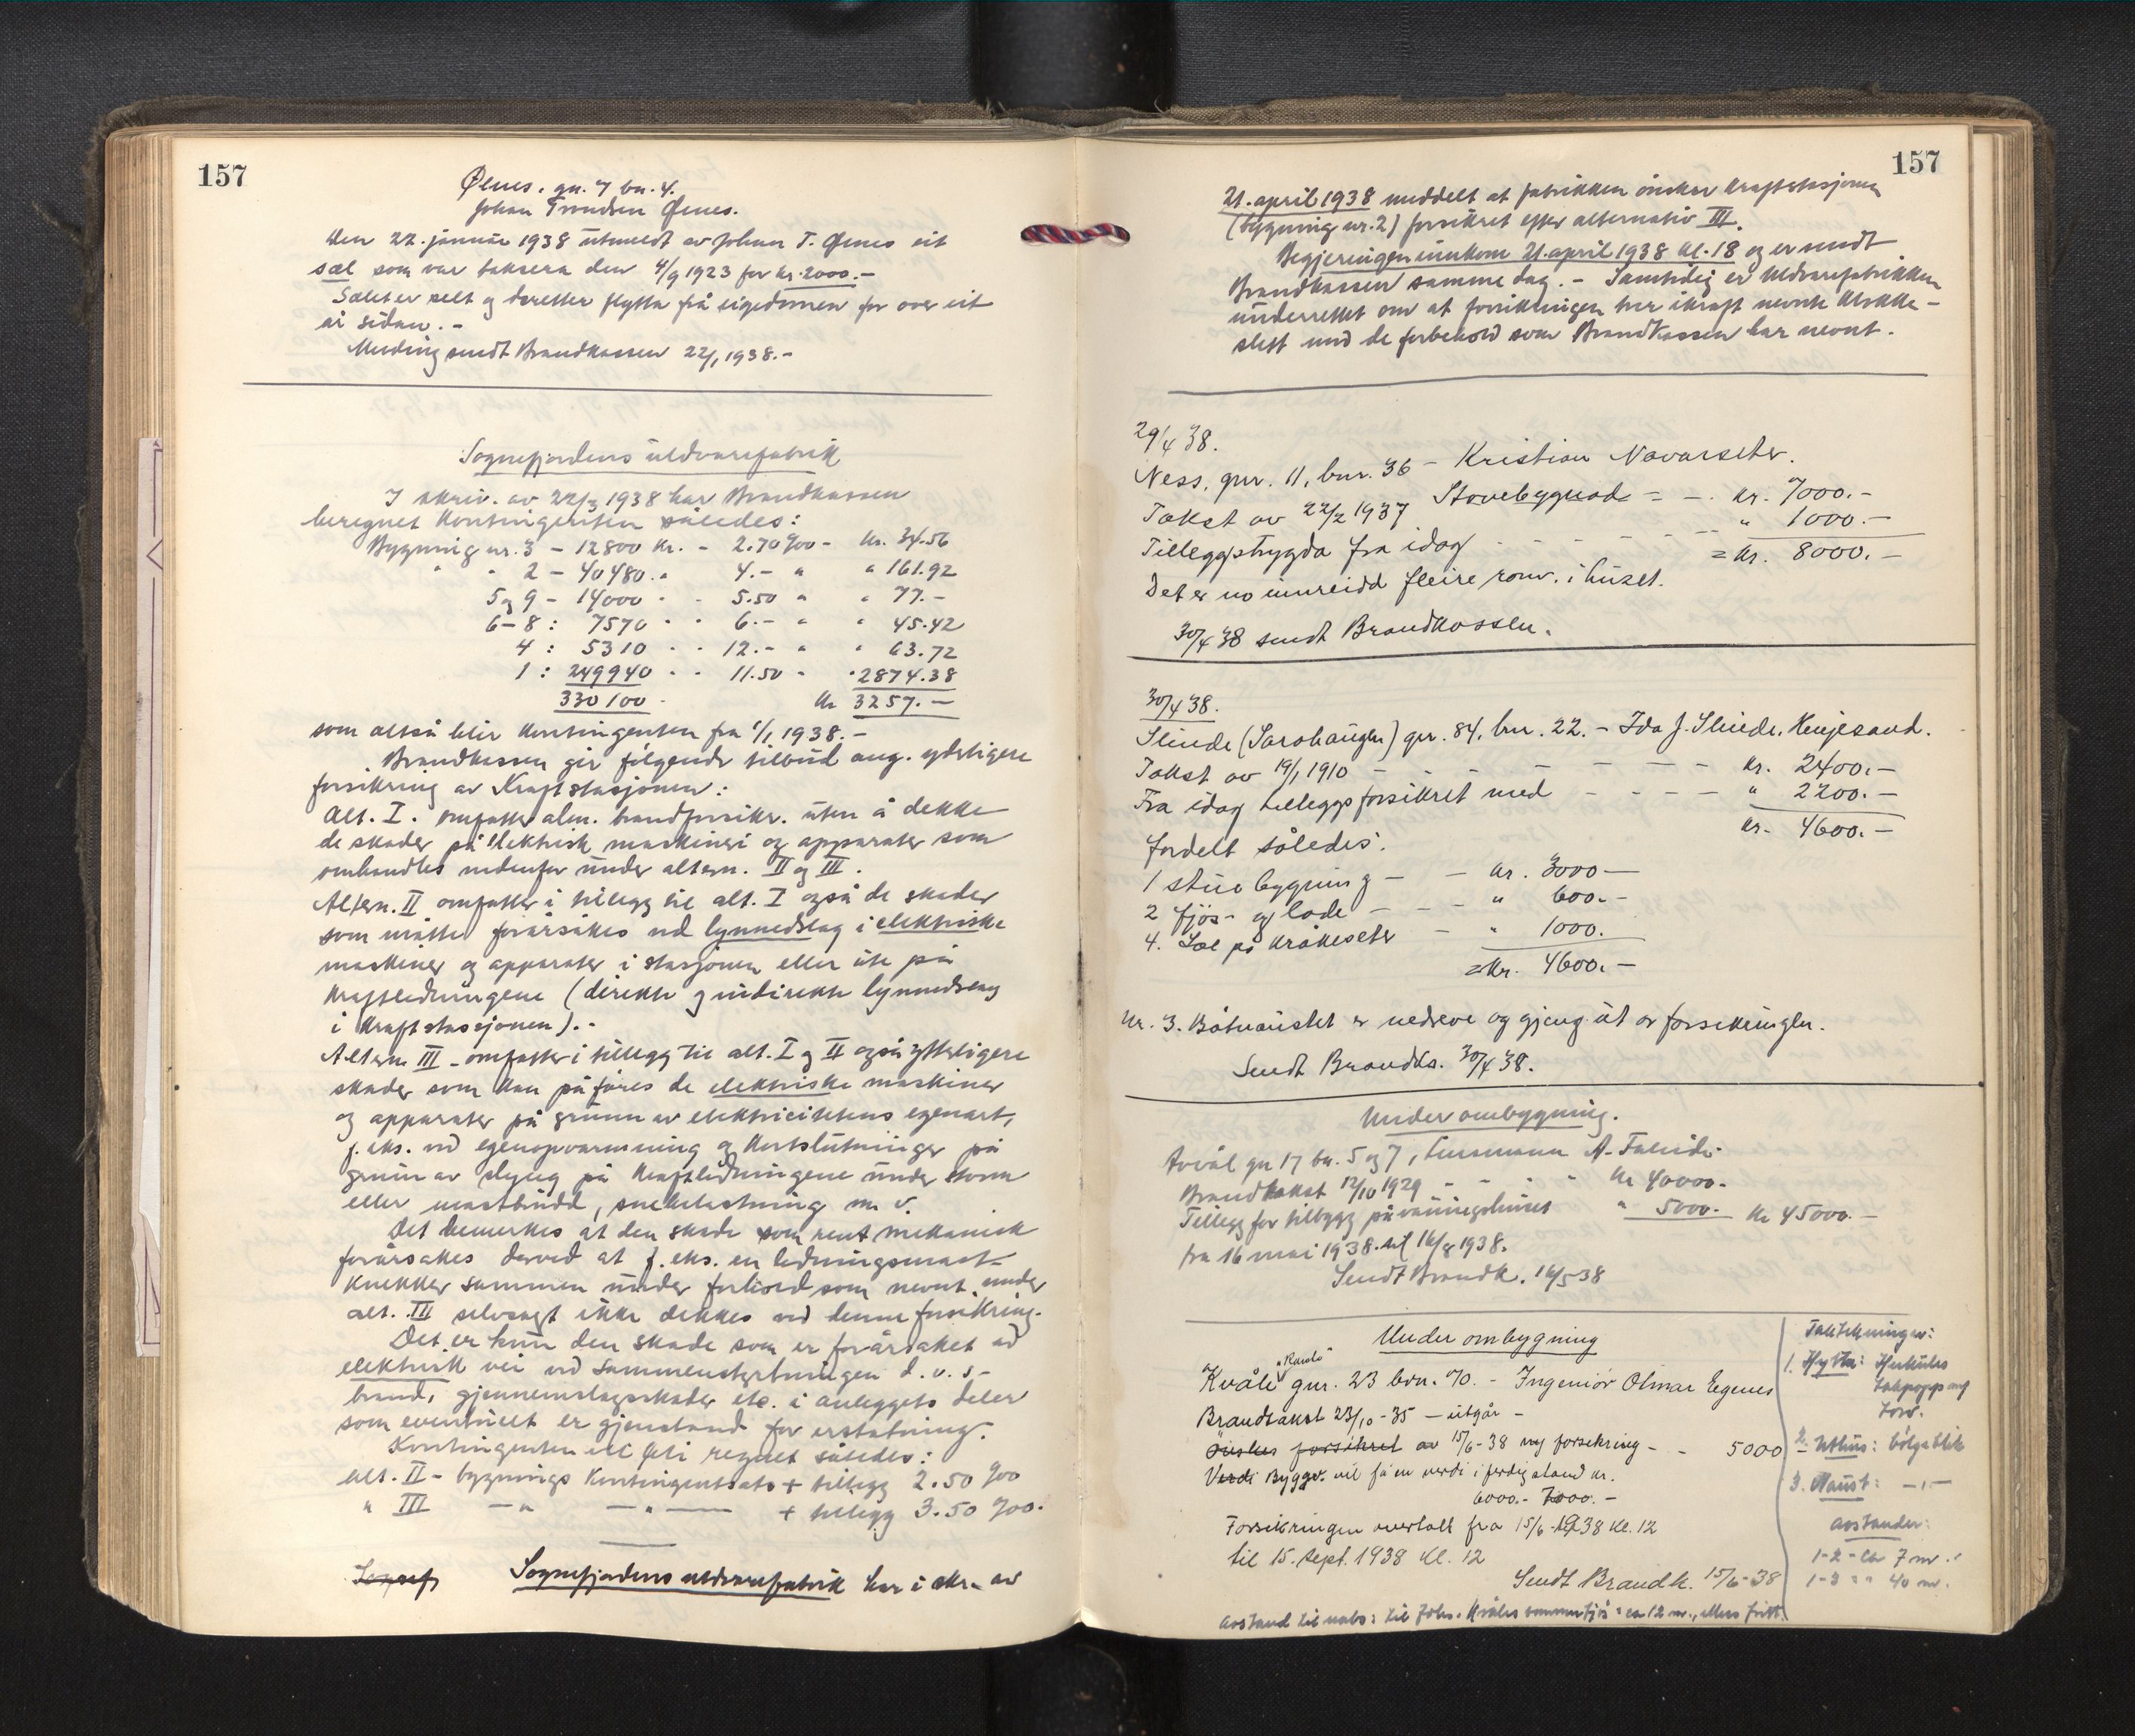 157
Ølnes. gn. 7 bn. 4.
Johan Trondsen Ølnes.
Den 22. januar 1938 utmeldt av Johan T. Ølnes eit
sæl som var taksera den 4/9 1923 for kr. 2000.-
Sælet er selt og deretter flytta frå eigedomen for over eit
år sidan. -
Melding sendt Brandkassen 22/1 1938.-
Sognefjordens uldvarefabrik
I skriv. av 22/3 1938 har Brandkassen
beregnet kontingenten således:
Bygning nr. 3 - 12800 kr. - 2.70 %oo - kr. 34.56
" " 2 - 40480. " 4.- " " 161.92
5 og 9 - 14000 " - 5.50 " " 77.-
6-8 : 7570 " " 6.- " " 45.42
4 : 5310 " - 12.- " " 63.72
1 : 249940 " - 11.50 " " 2874.38
330100 - kr 3257.-
som altså blir kontingenten fra 1/1 1938.-
Brandkassen gir følgende tilbud ang. yderligere
forsikring av Kraftstasjonen:
Alt. I. omfatter alm. brandforsikr. uten å dekke
de skader på elektrisk maskineri og apparater som
omhandles nedenfor under altern. II og III.
Altern. II omfatter i tillegg til alt. I også de skader
som måtte forårsakes ved lynnedslag i elektriske
maskiner og apparater i stasjonen eller ute på
kraftledningene (direkte og indirekte lynnedslag
i kraftstasjonen).-
Altern III - omfatter i tillegg til alt. I og II også ytterligere
skader som kan påføres de elektriske maskiner
og apparater på grunn av elektricitetens egenart,
f. eks. ved egenopvarmning og kortslutninger på
grunn av slyng på kraftledningene under storm
eller mastbrudd, snebelastning m. v.
Det bemerkes at den skade som rent mekanisk
forårsakes derved at f. eks. en ledningsmast
knekker sammen under forhold som nevnt under
alt. III selvsagt ikke dekkes ved denne forsikring.
Det er kun den skade som er forårsaket ad
elektrisk vei ved sammenstyrtningen d. v. s.
brand, gjennemslagsskader etc. i anleggets deler
som eventuelt er gjenstand for erstatning.
Kontingenten vil bli regnet således:
alt. II - bygnings kontingentsats + tillegg 2.50 %oo
" III - " - " - + tillegg 3.50 %oo.
Sognef
Sognefjordens uldvarefabrik har i skr. av
157
21. april 1938 meddelt at fabrikken ønsker kraftstasjonen
(bygning nr. 2) forsikret efter alternativ III.
Begjeringen innkom 21. april 1938 kl. 18 og er sendt
Brandkassen samme dag. - Samtidig er uldvarefabrikken
underrettet om at forsikringen trer ikraft nevnte klokke-
slett med de forbehold som Brandkassen har nevnt.
29/4 38.
Ness, gnr. 11, bnr. 36 - Kristian Navarseter.
Takst av 22/2 1937 Stovebygnad - - kr. 7000.-
Tilleggstrygda fra idag - - - - - " 1000.-
= kr. 8000.-
Det er no innreidd fleire rom. i huset.
30/4 38 sendt Brandkassen.
30/4 38.
Slinde (Sarahaugen) gnr. 84, bnr. 22. - Ida J. Slinde, Henjesand.
Takst av 19/1 1910 - - - - - - kr. 2400.-
Fra idag tilleggsforsikret med - - - - " 2200.-
kr. 4600.-
fordelt således:
1 stuebygning - - kr. 3000 -
2 fjøs- og lade - - - " 600.-
4. Sæl på Kråkeseter - " 1000.
= kr. 4600.-
Nr. 3. Båtnaustet er nedreve og gjeng ut av forsikringen.
Sendt Brandks. 30/4 38.
Under ombygning.
gn 17 bn. 5 og 7, A.
Brandtakst 12/10 1929 - - - - kr 40000.-
Tillegg for tilbygg på våningshuset " 5000.- kr 45000.-
fra 16 mai 1938 til 16/8 1938.
Sendt Brandk. 16/5 38
Under ombygning
Kvåle gnr. 23 bnr. 70. - Ingeniør Olmar Eggenes
Brandtakst 23/10-35 - utgår -
Ønskes forsikret av 15/6-38 ny forsikring - - 5000
Verdi Byggv. vil få en verdi i ferdig stand kr.
6000.- 7000.-
Forsikringen overtatt fra 15/6-1938 kl. 12
til 15. sept. 1938 kl. 12
Sendt Brandk. 15/6-38
Avstand til nabo: til Johs. Kvåles sommerfjøs = ca 12 m., ellers fritt.
Taktekninger:
1. Hytta: Herkules
takpapp og
torv.
2. Uthus: bølgeblik
3. Naust: - " -
avstander:
1-2 - ca 7 m.
1-3 " " 40 m.